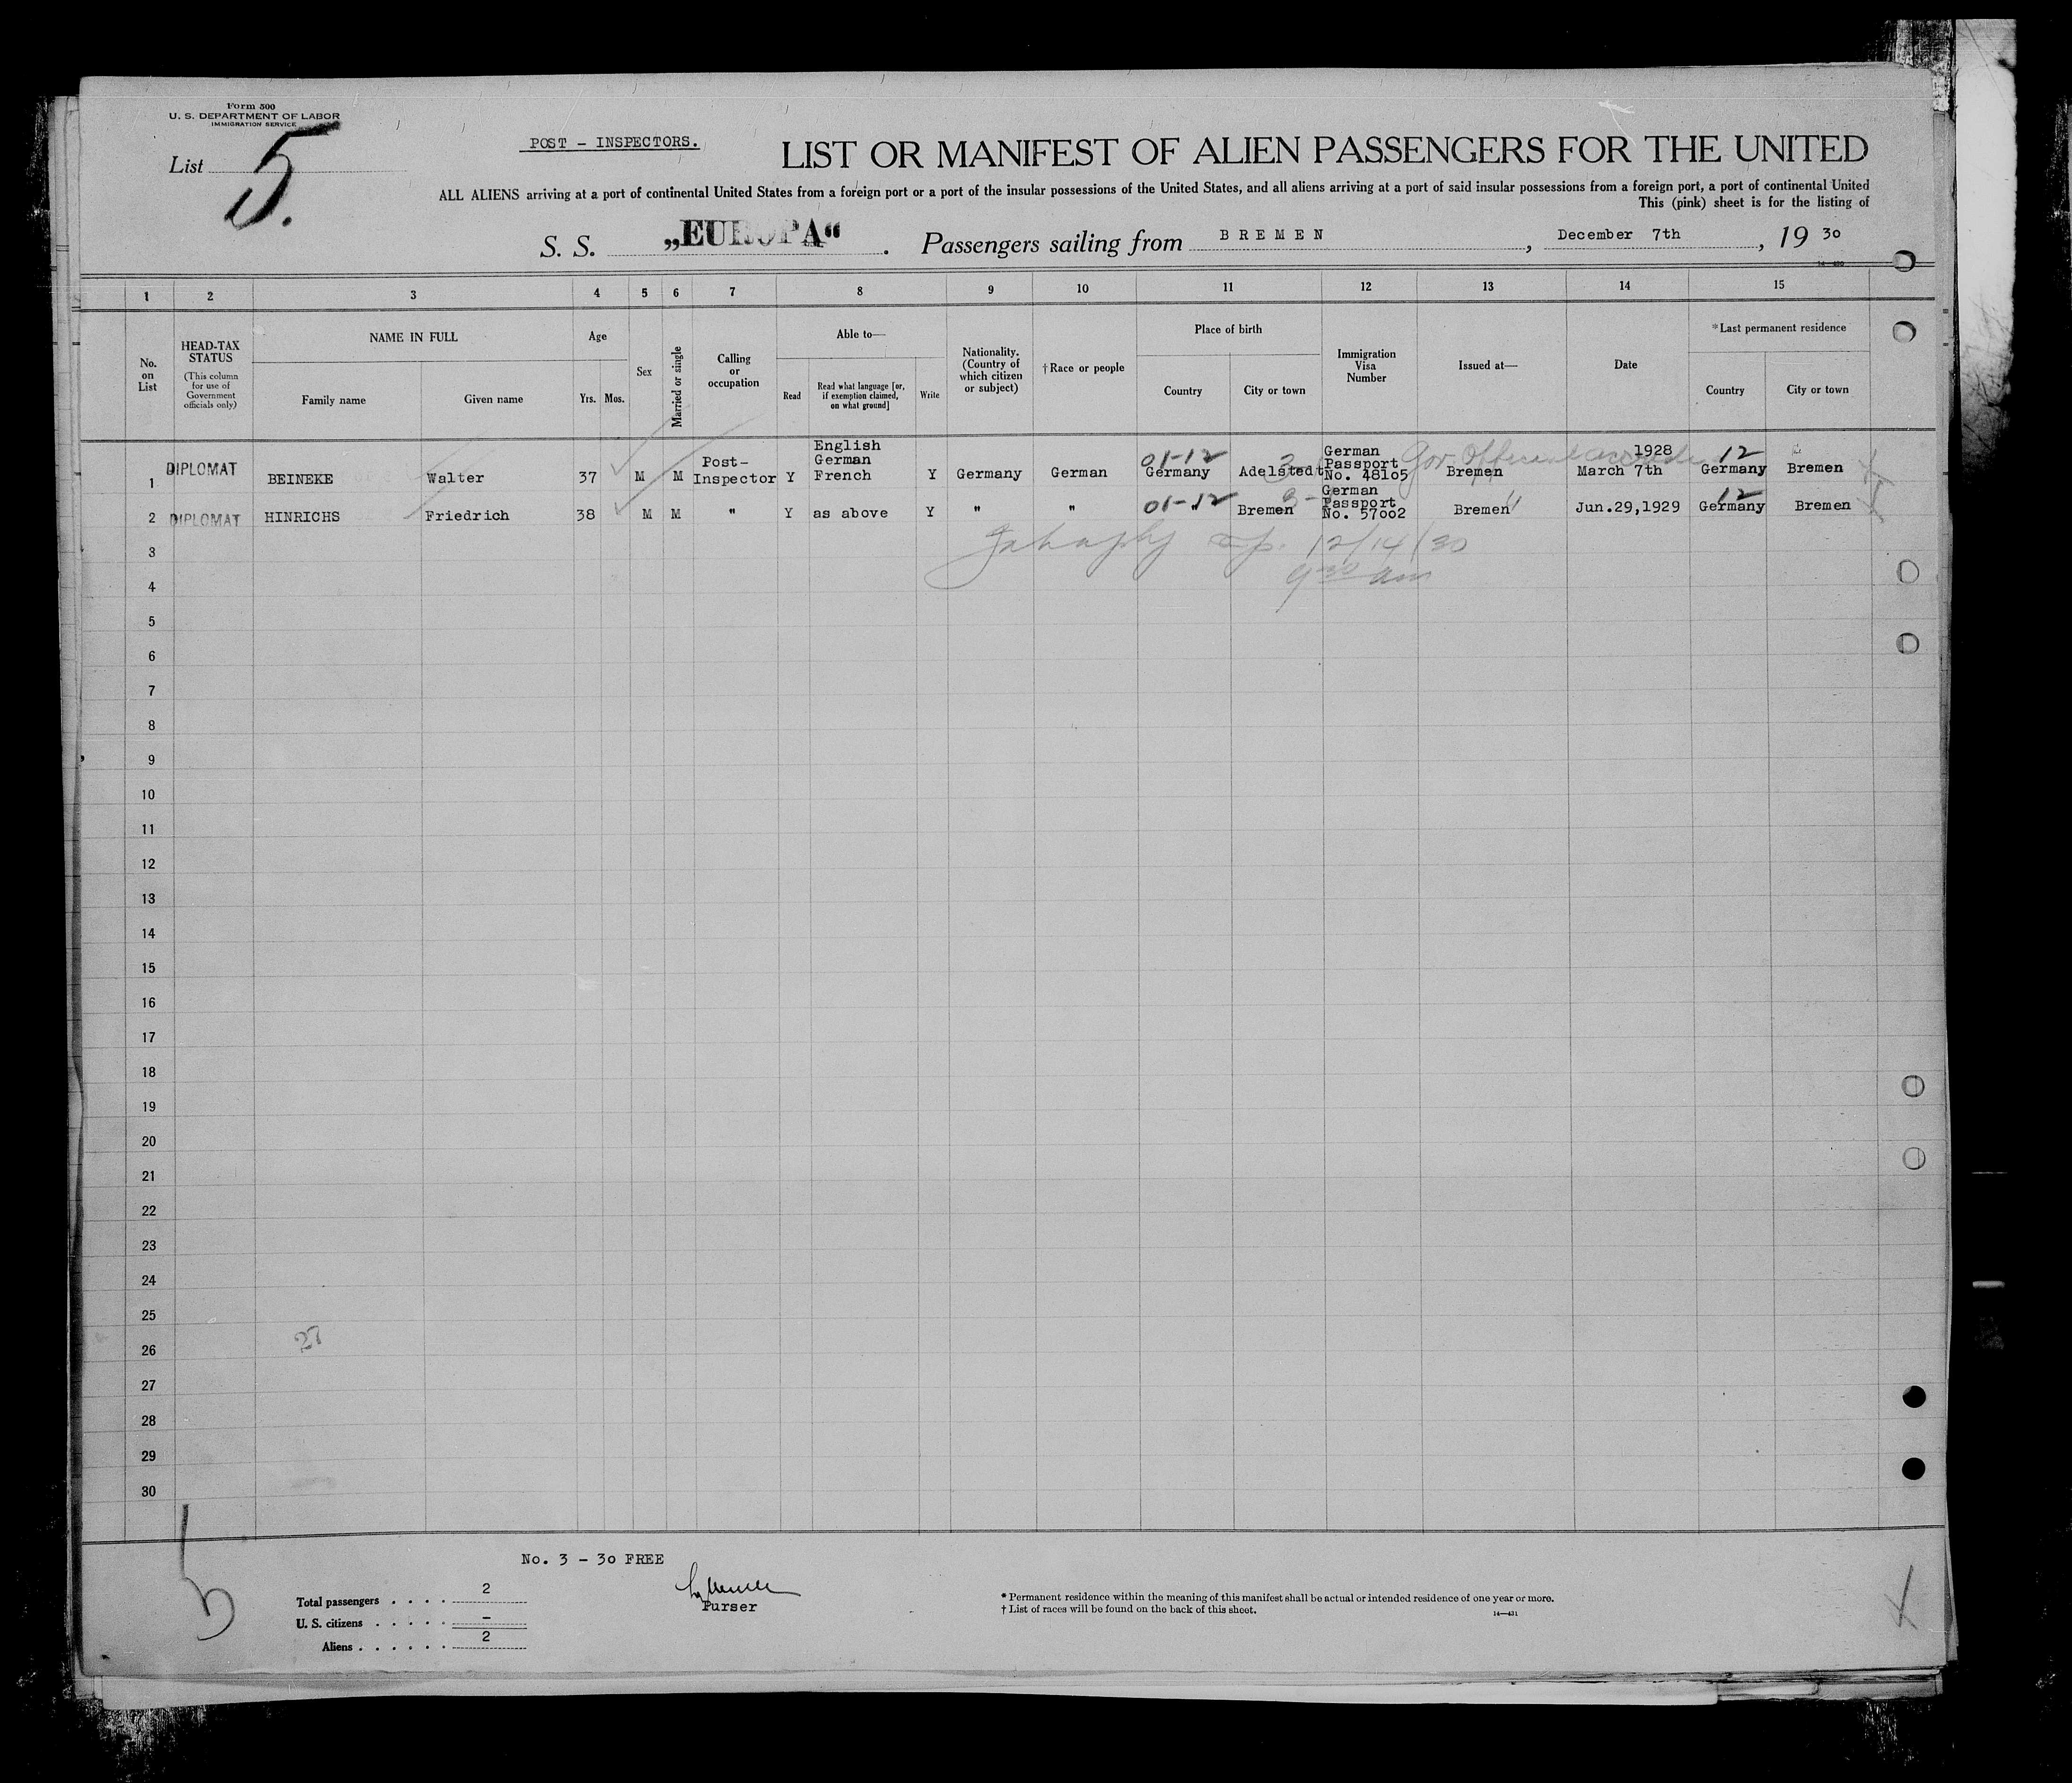 Form 500
U. S. DEPARTMENT OF LABOR
IMMIGRATION SERVICE
List 5.
POST - INSPECTORS.
LIST OR MANIFEST OF ALIEN PASSENGERS FOR THE UNITED
ALL ALIENS arriving at a port of continental United States from a foreign port or a port of the insular possessions of the United States, and all aliens arriving at a port of said insular possessions from a foreign port, a port of continental United
This (pink) sheet is for the listing of
S. S. „EUROPA“. Passengers sailing from BREMEN, December 7th, 19 30
1 2 3 4 5 6 7 8 9 10 11 12 13 14 15
No. on List
HEAD-TAX STATUS (This column for use of Government officials only)
NAME IN FULL
Family name Given name
Age
Yrs. Mos.
Sex
Married or single
Calling or occupation
Able to—
Read
Read what language [or, if exemption claimed, on what ground]
Write
Nationality. (Country of which citizen or subject)
†Race or people
Place of birth
Country City or town
Immigration Visa Number
Issued at—
Date
*Last permanent residence
Country City or town
1 DIPLOMAT BEINEKE Walter 37 M M Post-Inspector Y English German French Y Germany German 01-12 Germany Adelstedt German Passport No. 48105 Bremen 1928 March 7th 12 Germany Bremen
2 DIPLOMAT HINRICHS Friedrich 38 M M " Y as above Y " " 01-12 " Bremen German Passport No. 57002 Bremen Jun.29,1929 12 Germany Bremen
3
12/14/30
4
9 30 am
5
6
7
8
9
10
11
12
13
14
15
16
17
18
19
20
21
22
23
24
25
26
27
27
28
29
30
No. 3 - 30 FREE
Total passengers . . . . 2
U. S. citizens . . . . . –
Aliens . . . . . . 2
Purser
* Permanent residence within the meaning of this manifest shall be actual or intended residence of one year or more.
† List of races will be found on the back of this sheet.
14—431